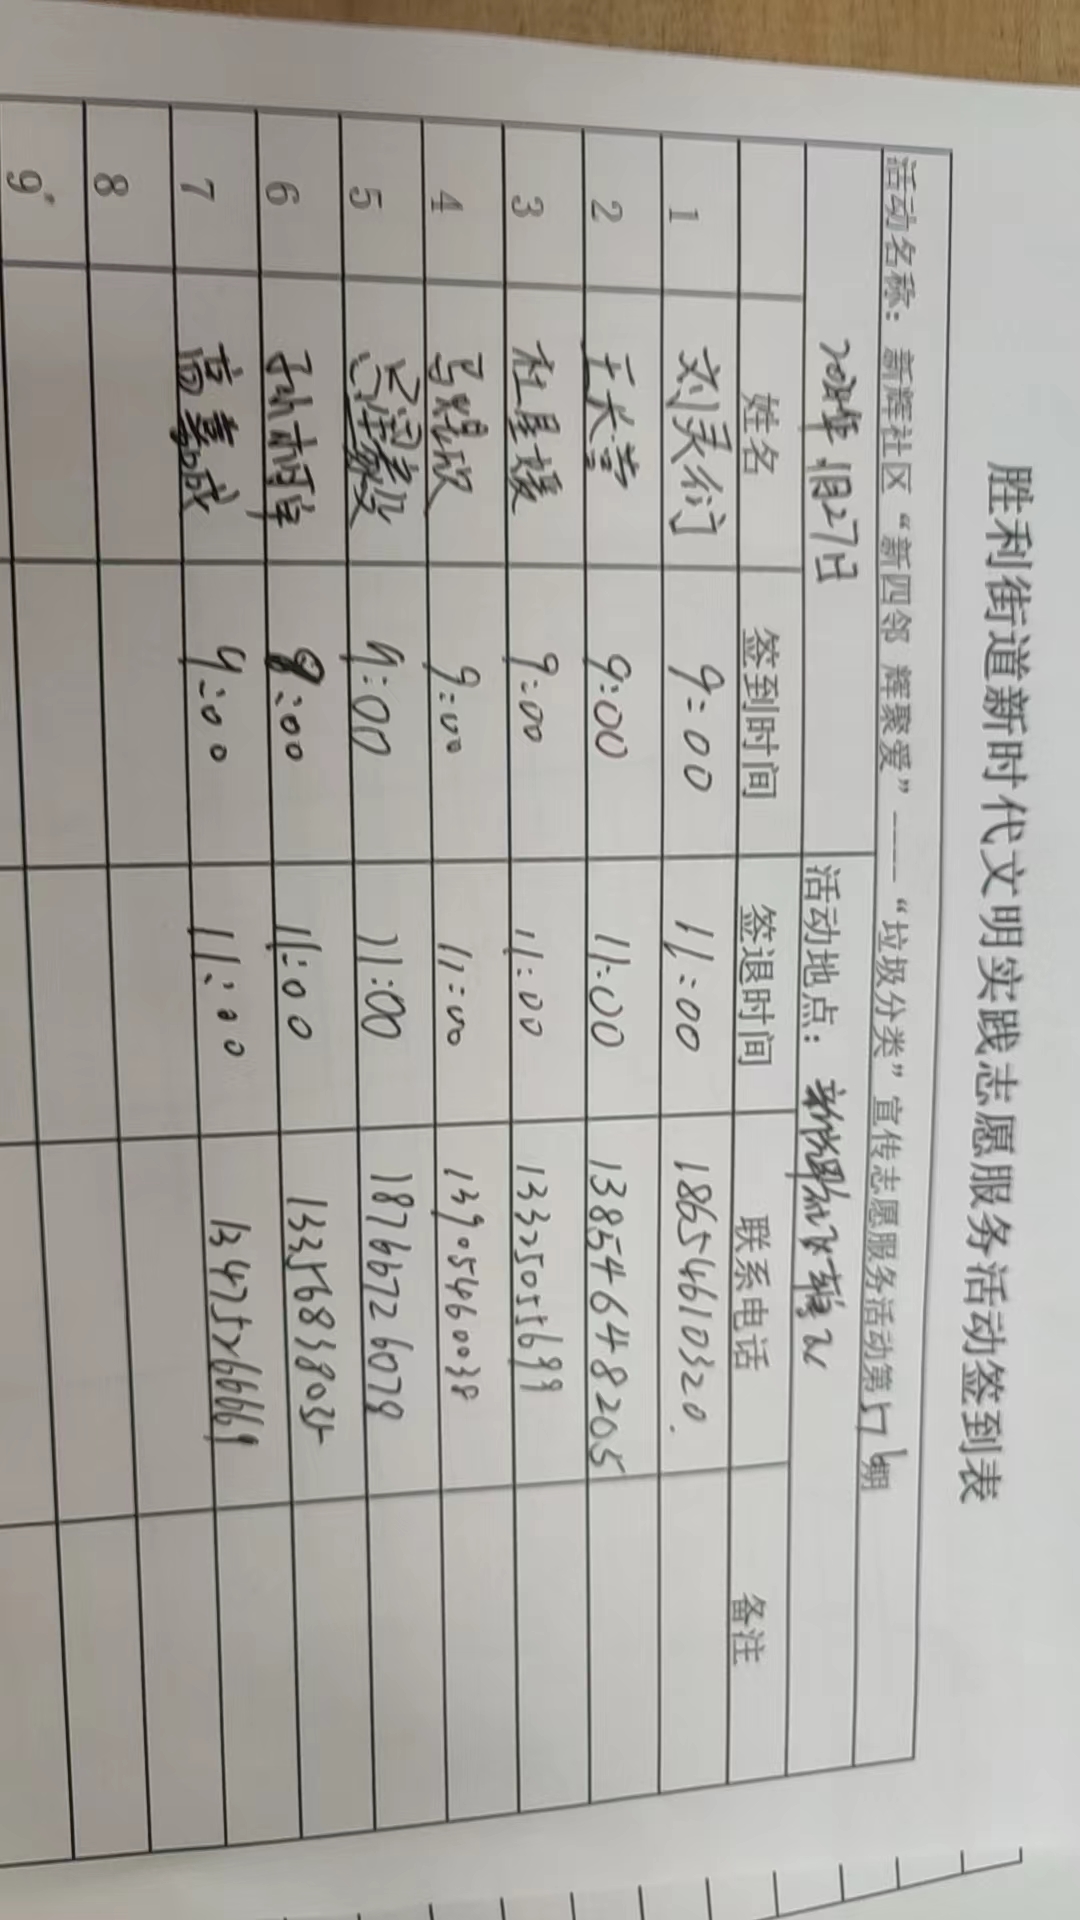 胜利街道新时代文明实践志愿服务活动签到表
活动名称：新辉社区“新四邻 辉聚爱”----“垃圾分类”宣传志愿服务活动第 期
27日 活动地点：
姓名 签到时间 签退时间 联系电话 备注
1 刘灵衍 9:00 11:00 18654610320.
2 9:00 11:00 13854648205
3 杜星媛 9:00 11:00 13325055699
4 9:00 11:00 13905460038
5 9:00 11:00 18766726078
6 :00 11:00 13356838035
7 高嘉成 9:00 11:00 13475266669
8
9